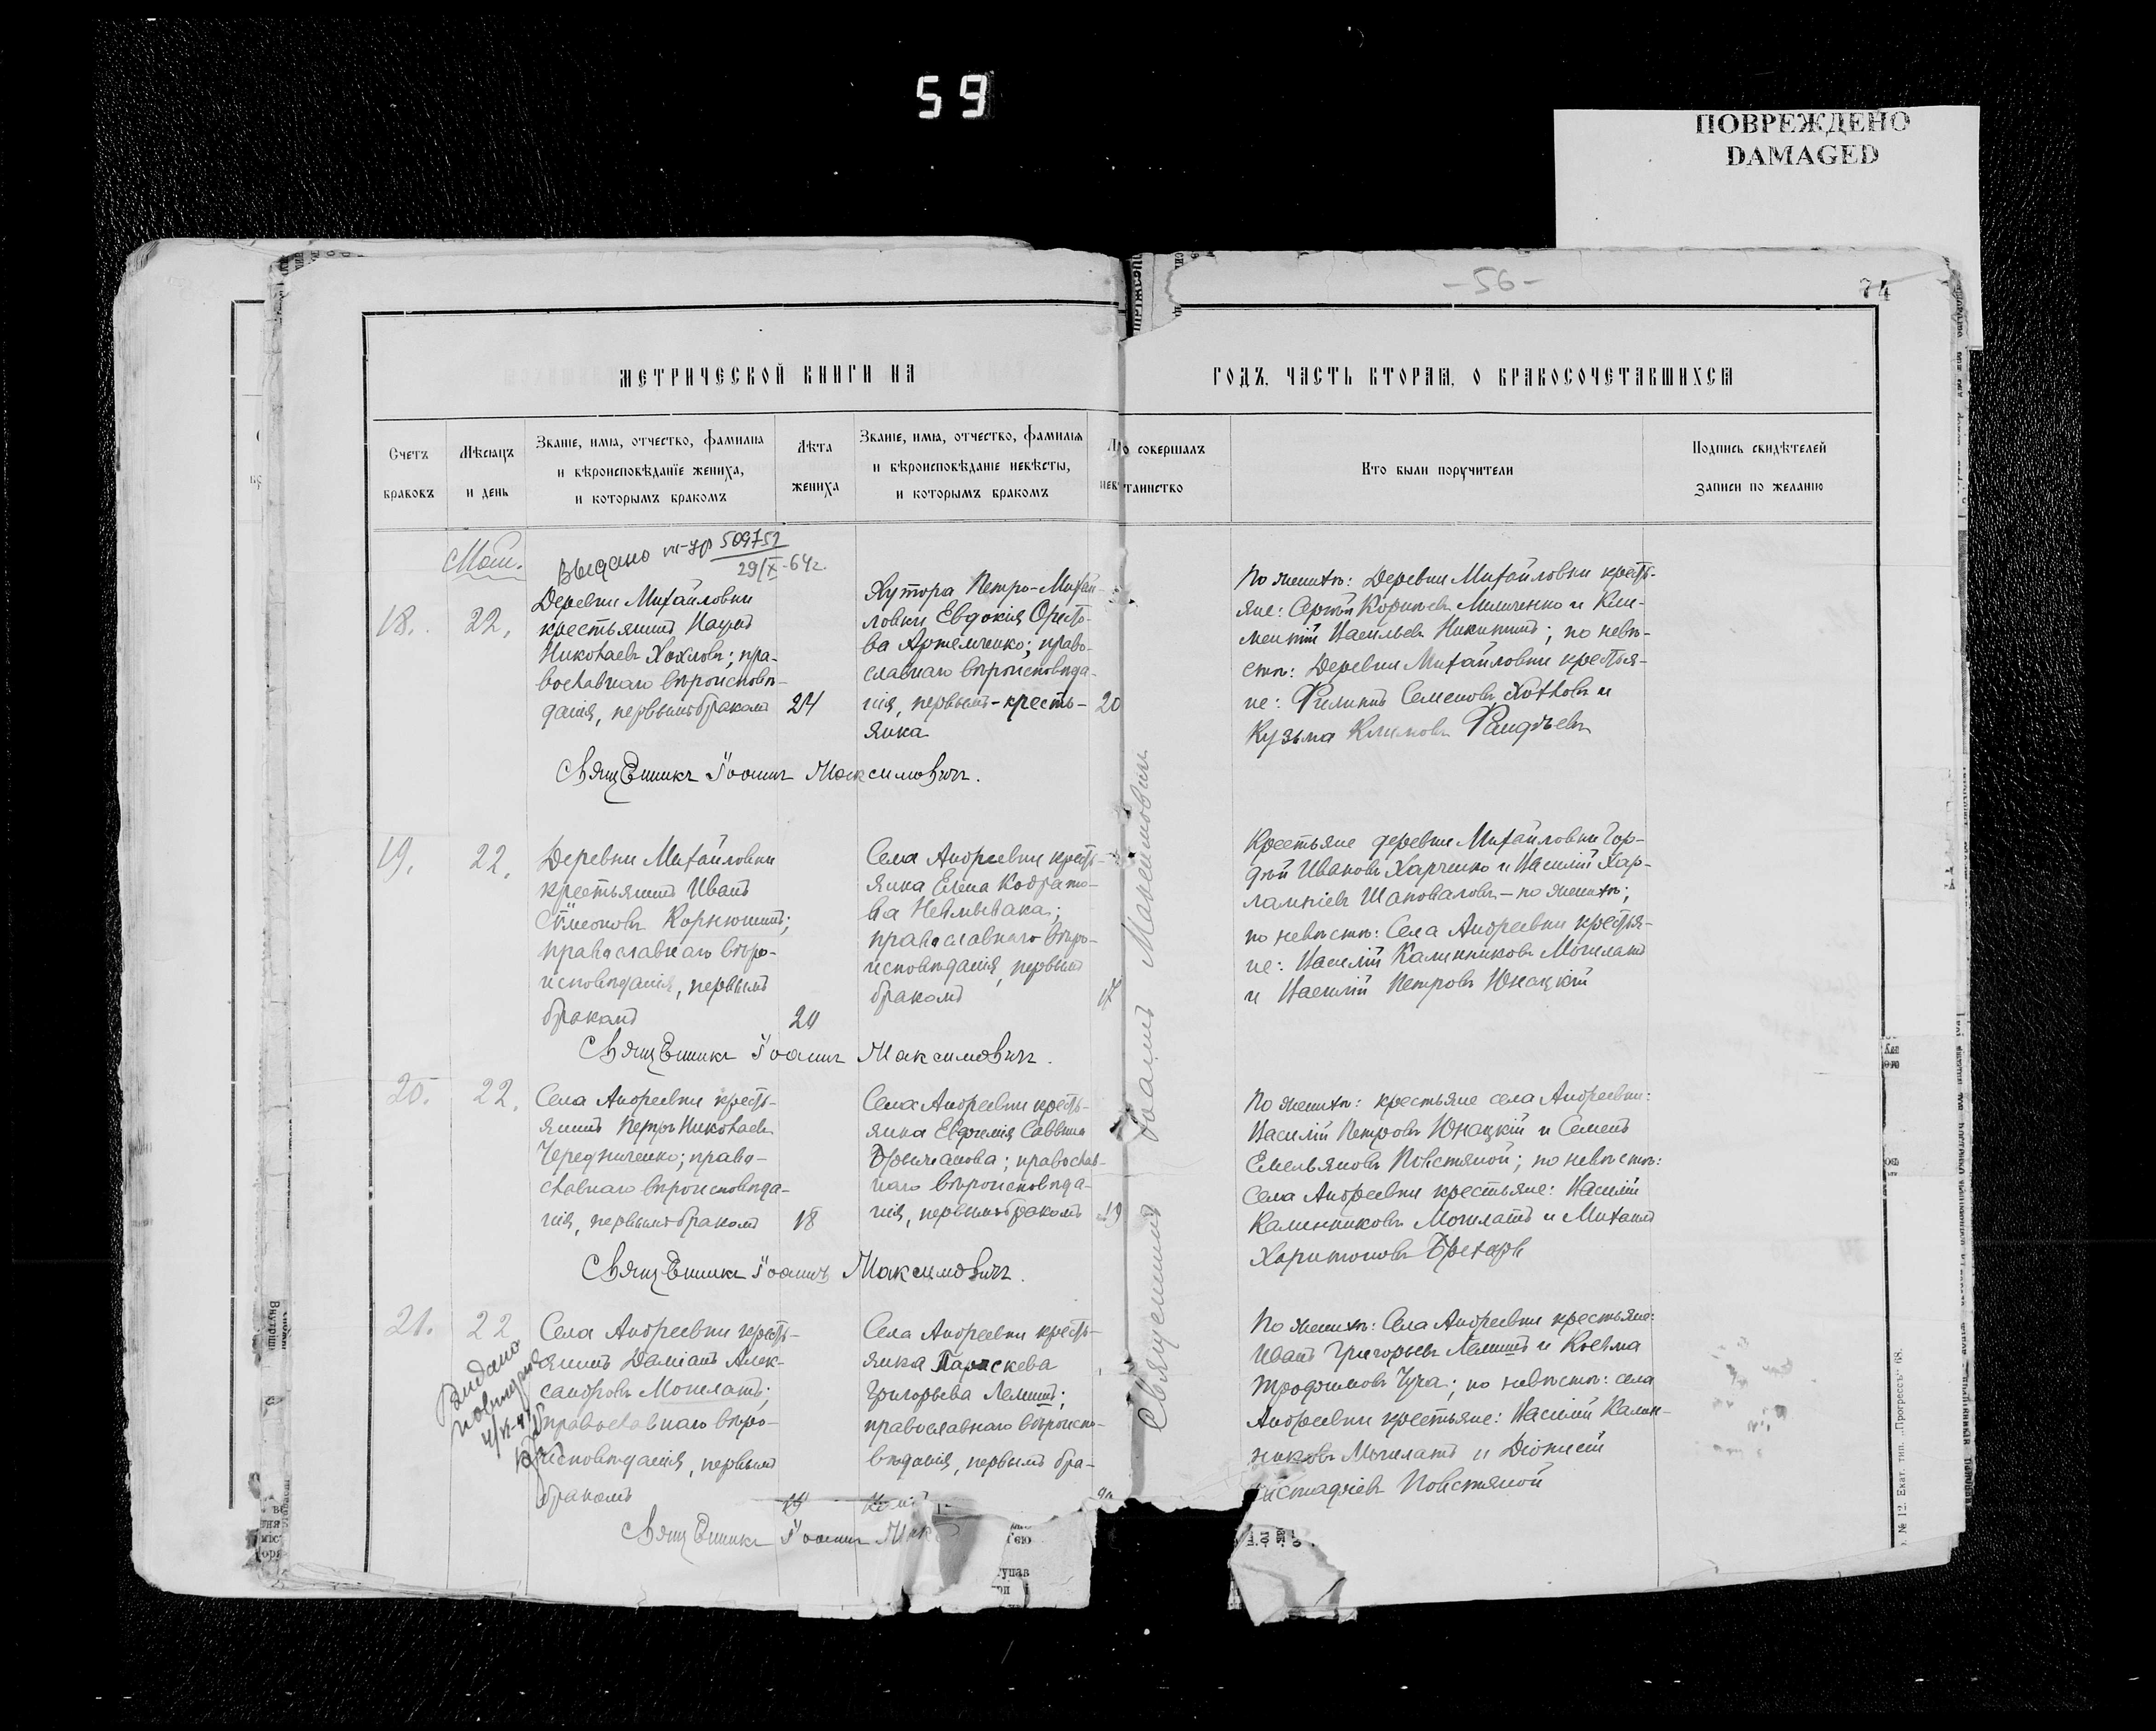 59
ПОВРЕЖДЕНО
DAMAGED
- 56 -
74
МЕТРИЧЕСКОЙ КНИГИ НА
ГОДЪ, ЧАСТЬ ВТОРАЯ, О БРАКОСОЧЕТАВШИХСЯ
Счетъ
браковъ
Мѣсяцъ
и день
Званіе, имя, отчество, фамилія
и вѣроисповѣданіе жениха,
и которымъ бракомъ
Лѣта
жениха
Званіе, имя, отчество, фамилія
и вѣроисповѣданіе невѣсты,
и которымъ бракомъ
совершалъ
таинство
Кто были поручители
Подпись свидѣтелей
записи по желанію
Май.
Выдано 509752
29/X-64г.
18.
22.
Деревни Михайловки
крестьянинъ Наумъ
Николаевъ Хохловъ; пра-
вославнаго вѣроисповѣ-
данія, первымъ бракомъ
24
Хутора Петро-Михай
ловки Евдокія
ва Артемченко; право-
славнаго вѣроисповѣда-
нія, первымъ - кресть-
янка
20
По женихѣ: Деревни Михайловки кресть-
яне: Сергѣй Миличенко и Кли-
ментій Васильевъ Никитинъ; по невѣ-
стѣ: Деревни Михайловки крестья-
не: Филиппъ Семеновъ Хохловъ и
Кузьма Климовъ
Священникъ Іоаннъ Максимовичъ.
19.
22.
Деревни Михайловки
крестьянинъ Иванъ
Сѵмеоновъ Корнюшинъ;
православнаго вѣро-
исповѣданія, первымъ
бракомъ
20
Села Андреевки кресть-
янка Елена Кодрато-
ва Невмывака;
православнаго вѣро-
исповѣданія, первымъ
бракомъ
17
Крестьяне деревни Михайловки Гор-
дѣй Ивановъ Харченко и Василій Хар-
лампіевъ Шаповаловъ - по женихѣ;
по невѣстѣ: Села Андреевки крестья-
не: Василій Калинниковъ Могилатъ
и Василій Петровъ Юнацкій
Священникъ Іоаннъ Максимовичъ.
20.
22.
Села Андреевки кресть-
янинъ Петръ Николаевъ
Чередниченко; право-
славнаго вѣроисповѣда-
нія, первымъ бракомъ
18
Села Андреевки кресть-
янка Евфимія Саввина
; православ-
наго вѣроисповѣда-
нія, первымъ бракомъ
19
По женихѣ: крестьяне села Андреевки:
Василій Петровъ Юнацкій и Семенъ
Емельяновъ Повстяной; по невѣстѣ:
Села Андреевки крестьяне: Василій
Калинниковъ Могилатъ и Михаилъ
Харитоновъ
Священникъ Іоаннъ Максимовичъ.
21.
22
Видано
Села Андреевки кресть-
янинъ Даміанъ Алек-
сандровъ Могилатъ;
православнаго вѣро-
исповѣданія, первымъ
бракомъ
19
Села Андреевки кресть-
янка Параскева
Григорьева Лемишъ;
православнаго вѣроиспо-
вѣданія, первымъ бра-
По женихѣ: Села Андреевки крестьяне:
Иванъ Григорьевъ Лемишъ и Козьма
Трофимовъ Чура; по невѣстѣ: села
Андреевки крестьяне: Василій Калин-
никовъ Могилатъ и Діонисій
Повстяной
Священникъ Іоаннъ
Священникъ Іоаннъ Максимовичъ
№ 12. Екат. тип. „Прогрессъ" 68.